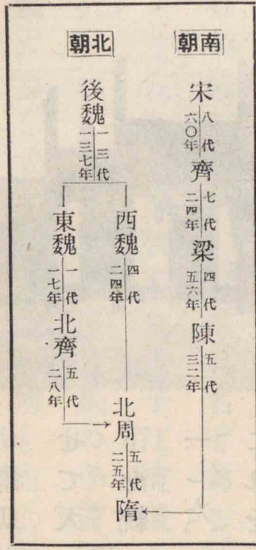 南朝
宋 八代 六〇年
齊 七代 二四年
梁 四代 五六年
陳 五代 三二年
北朝
後魏 一三代 一三七年
西魏 四代 二四年
東魏 一代 一七年
北齊 五代 二八年
北周 五代 二五年
隋